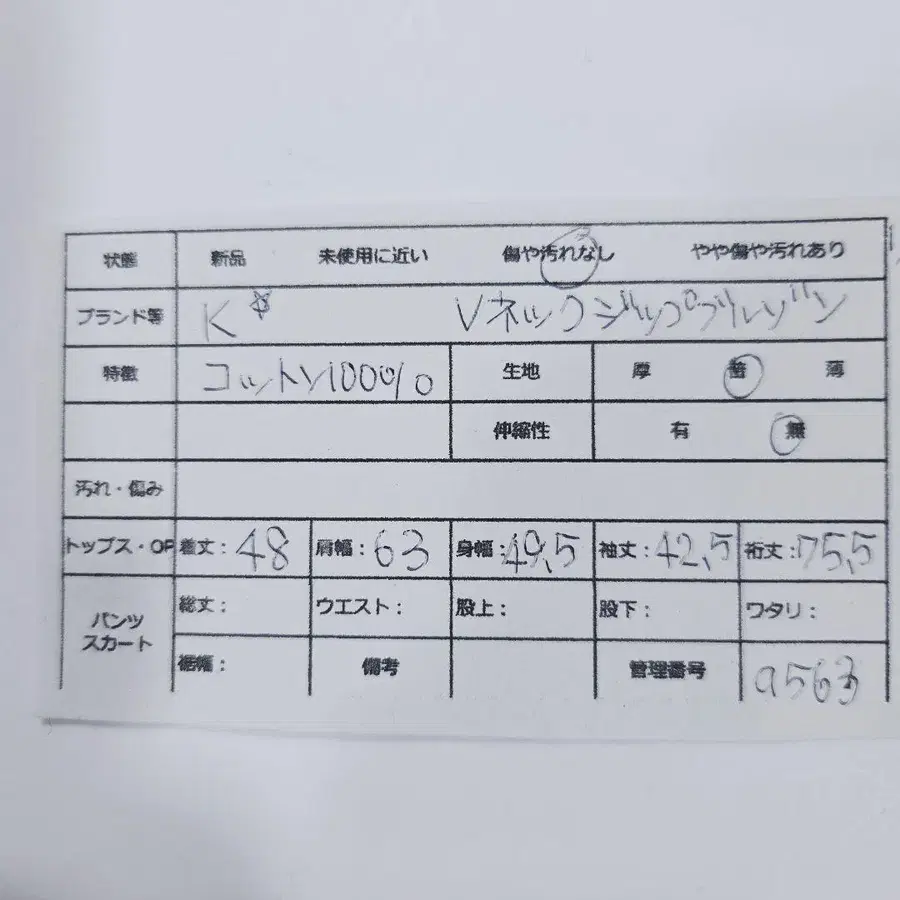 状態 新品 未使用に近い 傷や汚れなし やや傷や汚れあり
ブランド等 K☆ Vネックジップブルゾン
特徴 コットン100% 生地 厚 普 薄
伸縮性 有 無
汚れ・傷み
トップス・OP 着丈:48 肩幅:63 身幅:49,5 袖丈:42,5 裄丈:75,5
パンツ
スカート
総丈: ウエスト: 股上: 股下: ワタリ:
裾幅: 備考 管理番号 a563